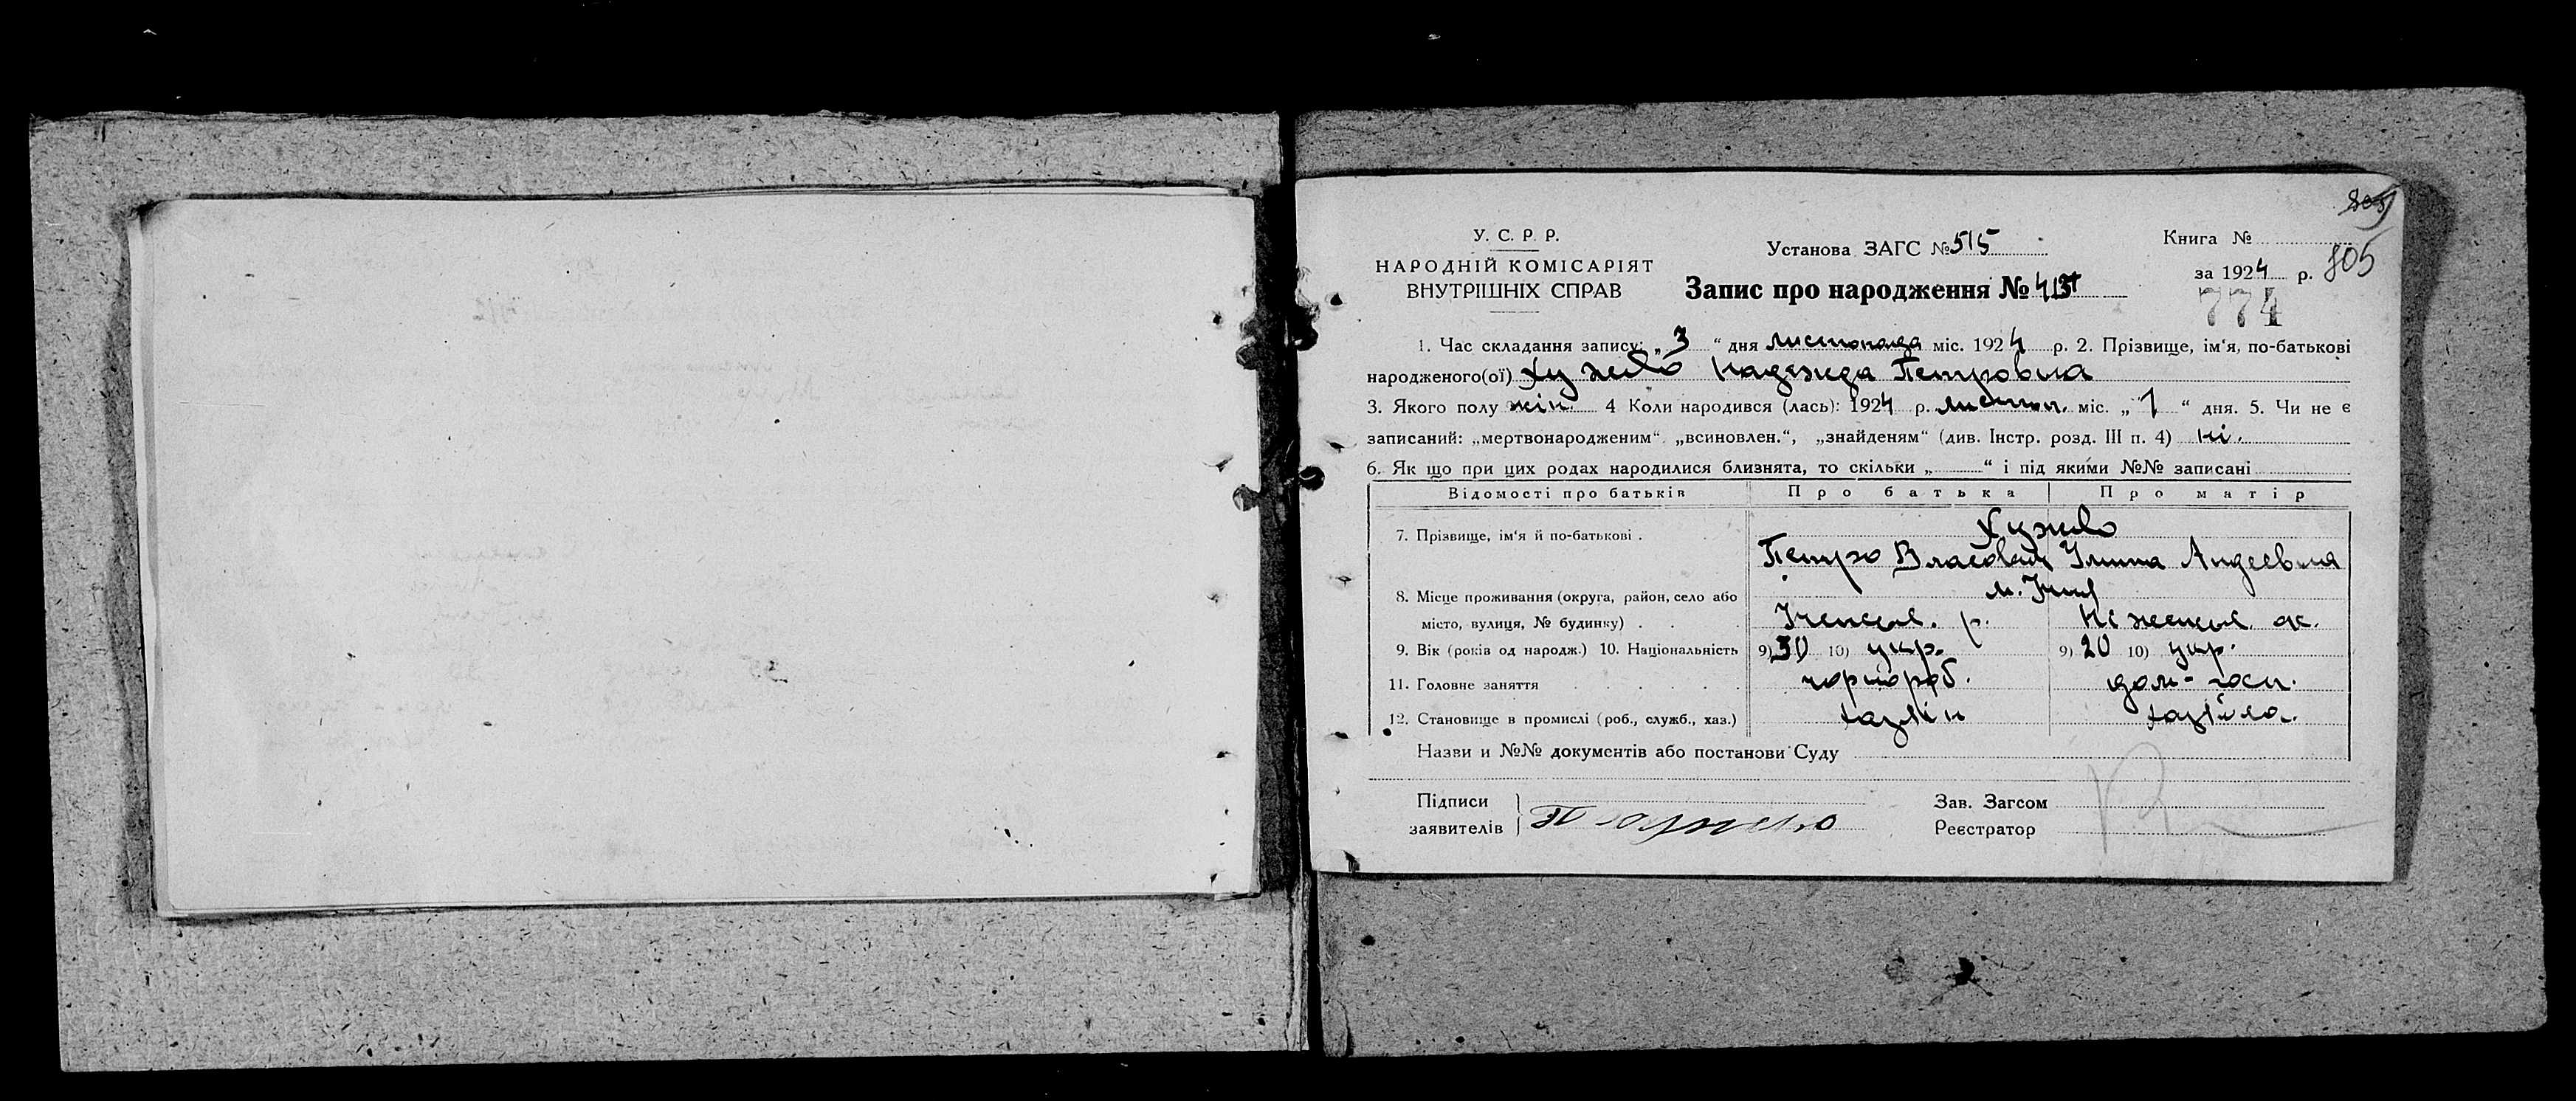 805
У. С. Р. Р.
НАРОДНІЙ КОМІСАРІЯТ
ВНУТРІШНІХ СПРАВ
Установа ЗАГС № 515
Запис про народження №
Книга №
за 1924 р.
805
774
1. Час складання запису: „ 3 “ дня листопада міс. 1924 р. 2. Прізвище, ім'я, по-батькові
народженого(ої) Надежда Петровна
3. Якого полу жін. 4 Коли народився (лась): 1924 р. листоп. міс. „ 1 “ дня. 5. Чи не є
записаний: „мертвонародженим“ „всиновлен.“, „знайденям“ (див. Інстр. розд. III п. 4) ні.
6. Як що при цих родах народилися близнята, то скільки „ “ і під якими №№ записані
Відомості про батьків Про батька Про матір
7. Прізвище, ім'я й по-батькові .
Петро Власович Улита Андеевна
8. Місце проживання (округа, район, село або
м. Ічня
місто, вулиця, № будинку) . . Іченськ. р. Ніженськ. ок.
9. Вік (років од народж.) 10. Національність 9) 30 10) укр. 9) 20 10) укр.
11. Головне заняття . . . . . . чорнороб. дом-госп.
12. Становище в промислі (роб., служб., хаз.) хазяін хазяйка.
Назви и №№ документів або постанови Суду
Підписи
заявителів
Зав. Загсом
Реєстратор